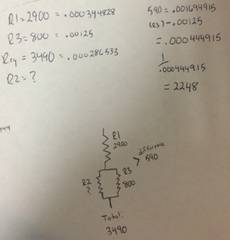 R1 = 2900 = .000344828
R3 = 800 = .00125
Req = 3490 = .000286533
R2 = ?
590 = .001694915
(R3) - .00125
= .000444915
1
.000444915
= 2248
R1
2900
R2
?
R3
800
590
Total
3490